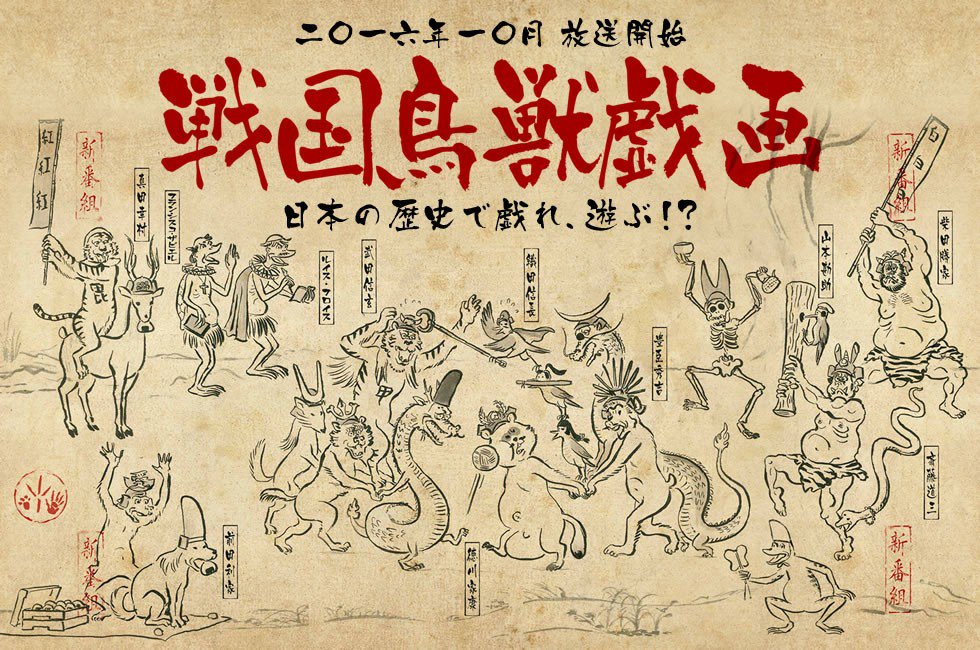 二〇一六年一〇月 放送開始
戦国鳥獣戯画
日本の歴史で戯れ、遊ぶ!?
紅紅紅
新番組
真田幸村
フランシスコ・ザビエル
ルイス・フロイス
武田信玄
織田信長
豊臣秀吉
山本勘助
新番組
柴田勝家
毘
斎藤道三
前田利家
徳川家康
新番組
新番組